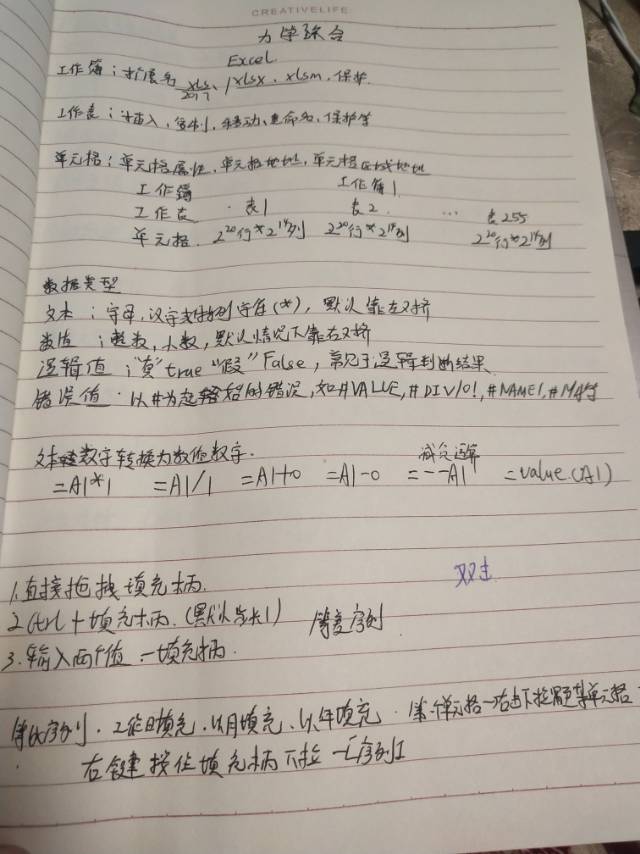 CREATIVELIFE
力学综合
Excel
工作簿：扩展名 xls、xlsx、xlsm，保护
工作表：插入，复制，移动、重命名、保护等
单元格：单元格属性，单元格地址，单元格区域地址
工作簿 工作簿1
工作表 表1 表2 … 表255
单元格 2^20行*2^14列 2^20行*2^14列 2^20行*2^14列
数据类型
文本：字母，汉字 字符(*)，默认靠左对齐
数值：整数，小数，默认情况下靠右对齐
逻辑值："真"true "假"False，常见于逻辑判断的结果
错误值：以#为起始的错误，如#VALUE,#DIV/0!,#NAME!,
文本数字转换为数值数字.
减负运算
=A1*1 =A1/1 =A1+0 =A1-0 =--A1 =value(A1)
1.直接拖拽填充柄. 双击
2.Ctrl+填充柄.(默认步长1) 等差序列
3.输入两个值—填充柄.
等比序列.工作日填充.以月填充、以年填充.
右键按住填充柄下拉—[序列]